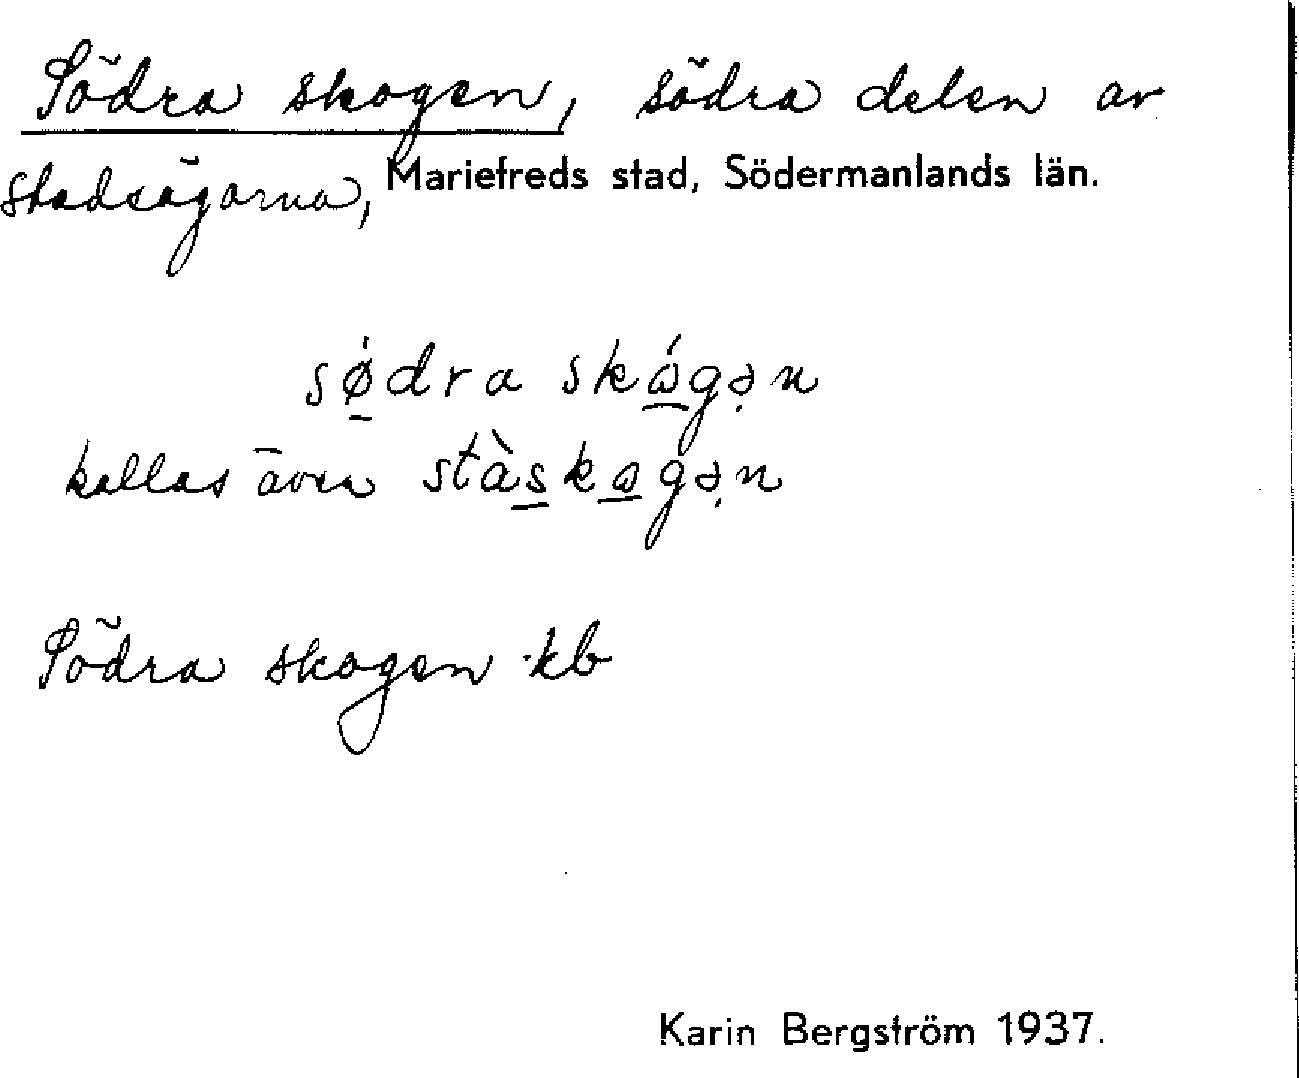 Södra skogen, södra delen av
stadsägorna, Mariefreds stad, Södermanlands län.
sǿ̱dra skɷ̱́gə̣n
kallas även stàs̱kɷ̱gə̣n
Södra skogen kb
Karin Bergström 1937.